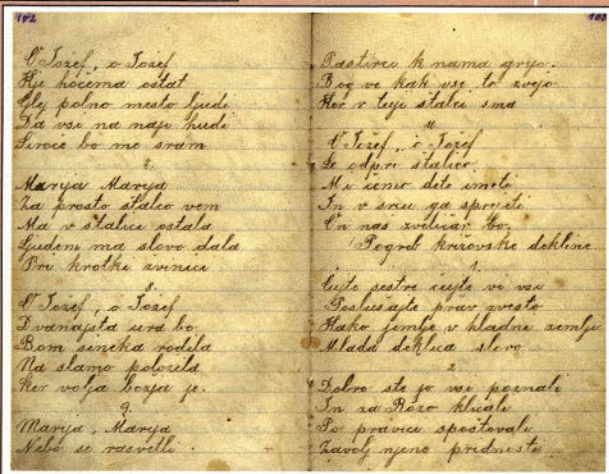 102
O Jožef, o Jožef
Kje hočema ostat
Glej polno mesto ljudi
Da vsi na naju hudi
Siroče bo me sram
Marija Marija
Za prosto štalco vem
Ma v štalici ostala
Ljudem ma slovo dala
Pri krotki živinici
8.
O Jožef, o Jožef
Dvanajsta ura bo.
Bom sinčka rodila
Na slamo položila
Ker volja božja je.
9.
Marija, Marija
Nebo se rasvetli
103
Pastirci k nama grejo.
Bog ve kak vse to zvejo
Ker v tuji štalci sma
O Jožef, o Jožef
Le odpri štalico
Mi čemo dete imeti
In v srcu ga sprejeti
On nas zveličar bo.
Pogreb križovske dekline
1.
Čujte sestre čujte vi vsi
Poslušajte prav zvesto
Kako jemlje v hladne zemlje
Mlada deklica slovo
2
Dobro ste jo vsi poznali
In za Rozo klicali
Po pravici spoštovali
Zavolj njeno pridnosti